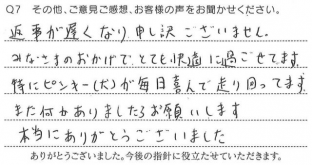 Q7　その他、ご意見ご感想、お客様の声をお聞かせください。
返事が遅くなり申し訳ございません。
みなさまのおかげでとても快適に過ごせてます。
特にピンキー(犬)が毎日喜んで走り回ってます。
また何かありましたらお願いします
本当にありがとうございました
ありがとうございました。今後の指針に役立たせていただきます。